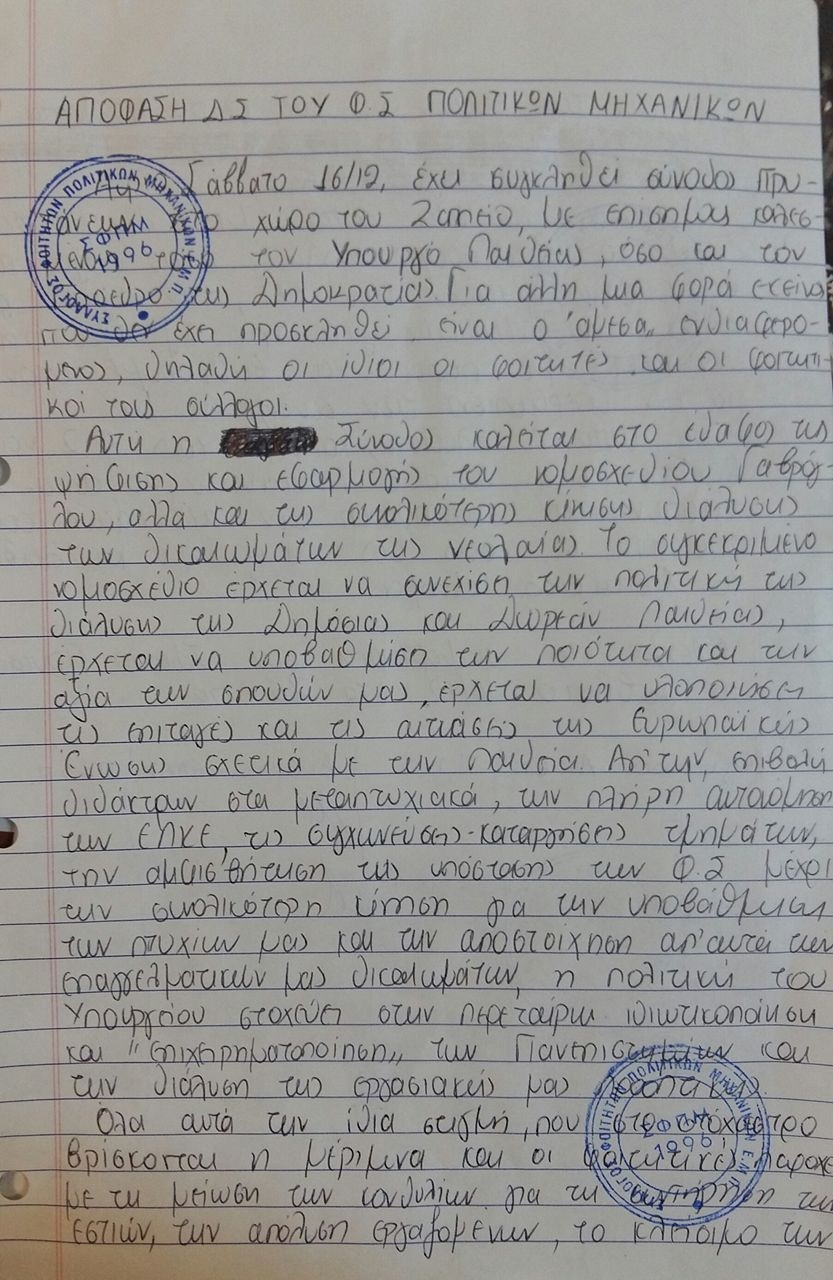 ΑΠΟΦΑΣΗ ΔΣ ΤΟΥ Φ.Σ ΠΟΛΙΤΙΚΩΝ ΜΗΧΑΝΙΚΩΝ
Σάββατο 16/12, έχει συγκληθεί σύνοδος Πρυ-
τάνεων στο χώρο του Ζαππείο, με επισήμως καλεσ-
μένους τόσο τον Υπουργό Παιδείας, όσο και τον
Πρόεδρο της Δημοκρατίας. Για άλλη μια φορά εκείνος
που θα έχει προσκληθεί είναι ο άμεσα ενδιαφερο-
μενος, δηλαδή οι ίδιοι οι φοιτητές και οι φοιτητι-
κοί τους σύλλογοι.
Αυτή η Σύνοδος καλείται στο έδαφος της
ψήφισης και εφαρμογής του νομοσχεδίου Γαβρόγ-
λου, αλλά και της συνολικότερης κίνησης διάλυσης
των δικαιωμάτων της νεολαίας. Το συγκεκριμένο
νομοσχέδιο έρχεται να συνεχίσει την πολιτική της
διάλυσης της Δημόσιας και Δωρεάν Παιδείας,
έρχεται να υποβαθμίσει την ποιότητα και την
αξία των σπουδών μας, έρχεται να υλοποιήσει
τις επιταγές και τις της Ευρωπαϊκής
Ένωσης σχετικά με την Παιδεία. Απ' την επιβολή
διδάκτρων στα μεταπτυχιακά, την πλήρη
των ΕΛΚΕ, τις συγχωνεύσεις-καταργήσεις τμημάτων,
την αμφισβήτηση της υπόστασης των Φ.Σ μέχρι
την συνολικότερη κίνηση για την υποβάθμιση
των πτυχίων μας και την αποστοίχηση απ' αυτά των
επαγγελματικών μας δικαιωμάτων, η πολιτική του
Υπουργείου στοχεύει στην περεταίρω ιδιωτικοποίηση
και "επιχειρηματοποίηση" των Πανεπιστημίων και
την διάλυση της εργασιακής μας προοπτικής.
Όλα αυτά την ίδια στιγμή, που στο στόχαστρο
βρίσκονται η μέριμνα και οι φοιτητικές παροχές
με τη μείωση των κονδυλίων για τη συντήρηση των
εστιών, την απόλυση εργαζομένων, το κλείσιμο των
ΣΥΛΛΟΓΟΣ ΦΟΙΤΗΤΩΝ ΠΟΛΙΤΙΚΩΝ ΜΗΧΑΝΙΚΩΝ Ε.Μ.Π.
ΣΦΠΜ
1996
ΣΥΛΛΟΓΟΣ ΦΟΙΤΗΤΩΝ ΠΟΛΙΤΙΚΩΝ ΜΗΧΑΝΙΚΩΝ Ε.Μ.Π.
ΣΦΠΜ
1996